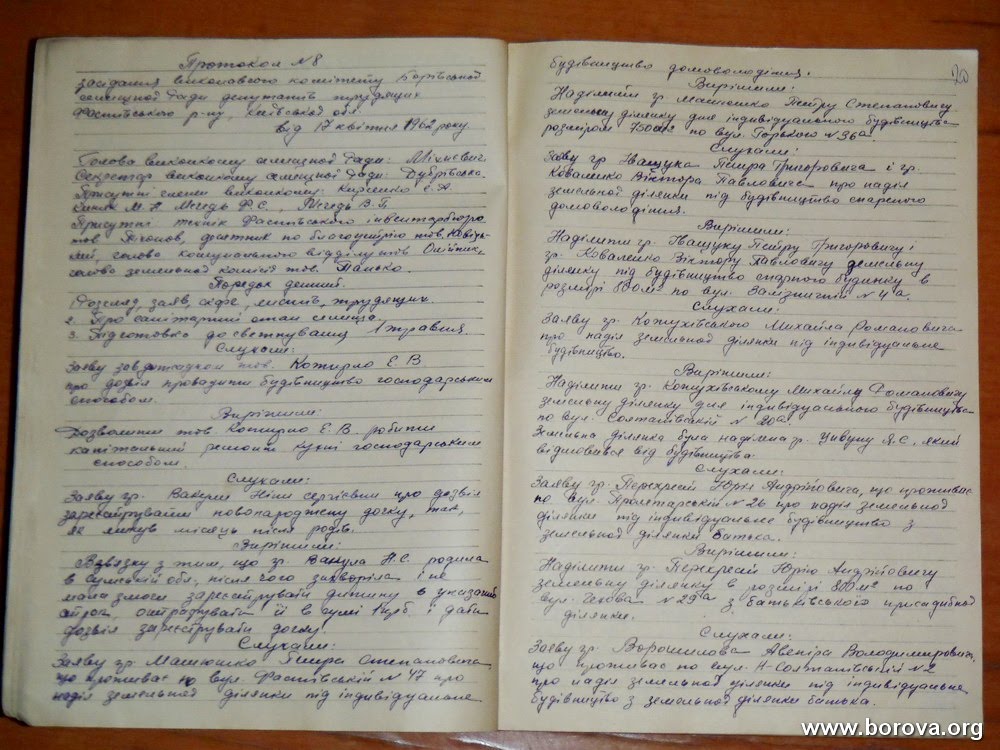 Протокол №8
засідання виконавчого комітету Борівської
селищної Ради депутатів трудящих
Фастівського р-ну, Київської обл.
від 17 квітня 1962 року.
Голова виконкому селищної Ради:
Секретар виконкому селищної Ради: Дубрівська
Присутні члени виконкому: Киренко
М. А. Медідь Ф. С. Медідь В. П.
Присутні: технік Фастівського інвентарбюро
тов. десятник по благоустрію тов.
голова комунального відділу тов. Олійник,
голова земельної комісії тов. Панько.
Порядок денний:
Розгляд заяв, скарг, листів, трудящих.
2. Про санітарний стан селища.
3. Підготовка до святкування 1 травня
Слухали:
Заяву тов. Котирло Е. В.
про дозвіл провадити будівництво господарським
способом.
Вирішили:
Дозволити тов. Котирло Е. В. робити
капітальний ремонт кухні господарським
способом.
Слухали:
Заяву гр. Вакули Ніни Сергіївни про дозвіл
зареєструвати новонароджену дочку, так,
як минув місяць після родів.
Вирішили:
Взвязку з тим, що гр. Вакула Н. С. родила
в Сумській обл, після чого захворіла і не
мала змоги зареєструвати дитину в указаний
строк, оштрафувати її в сумі 1 крб. і дати
дозвіл зареєструвати дочку.
Слухали:
Заяву гр. Матюшко Петра Степановича,
що проживає по вул. Фастівській №47 про
наділ земельної ділянки під індивідуальне
20
будівництво домоволодіння.
Вирішили:
Наділити гр. Матюшко Петру Степановичу
земельну ділянку для індивідуального будівництва
розміром 750 м2 по вул. Горького №36а.
Слухали:
Заяву гр. Іващука Петра Григоровича і гр.
Коваленко Віктора Павловича про наділ
земельної ділянки під будівництво спареного
домоволодіння.
Вирішили:
Наділити гр. Іващуку Петру Григоровичу і
гр. Коваленко Віктору Павловичу земельну
ділянку під будівництво спарного будинку в
розмірі 800 м2 по вул. Залізничній №4а.
Слухали:
Заяву гр. Кожухівського Михайла Романовича
про наділ земельної ділянки під індивідуальне
будівництво.
Вирішили:
Наділити гр. Кожухівському Михайлу Романовичу
земельну ділянку для індивідуального будівництва
по вул. Солтанівській № 20а.
Земельна ділянка була наділена гр. Цибуну Я. С, який
відмовився від будівництва.
Слухали:
Заяву гр. Перехрест Юрія Андрійовича, що проживає
по вул. Пролетарській №26 про наділ земельної
ділянки під індивідуальне будівництво з
земельної ділянки батька.
Вирішили:
Наділити гр. Перехрест Юрію Андрійовичу
земельну ділянку в розмірі 800 м2 по
вул. Чехова №29а з батьківської присадибної
ділянки.
Слухали:
Заяву гр. Ворошилова Авеніра Володимировича,
що проживає по вул. Н-Солтанівській №2
про наділ земельної ділянки під індивідуальне
будівництво з земельної ділянки батька.
www.borova.org